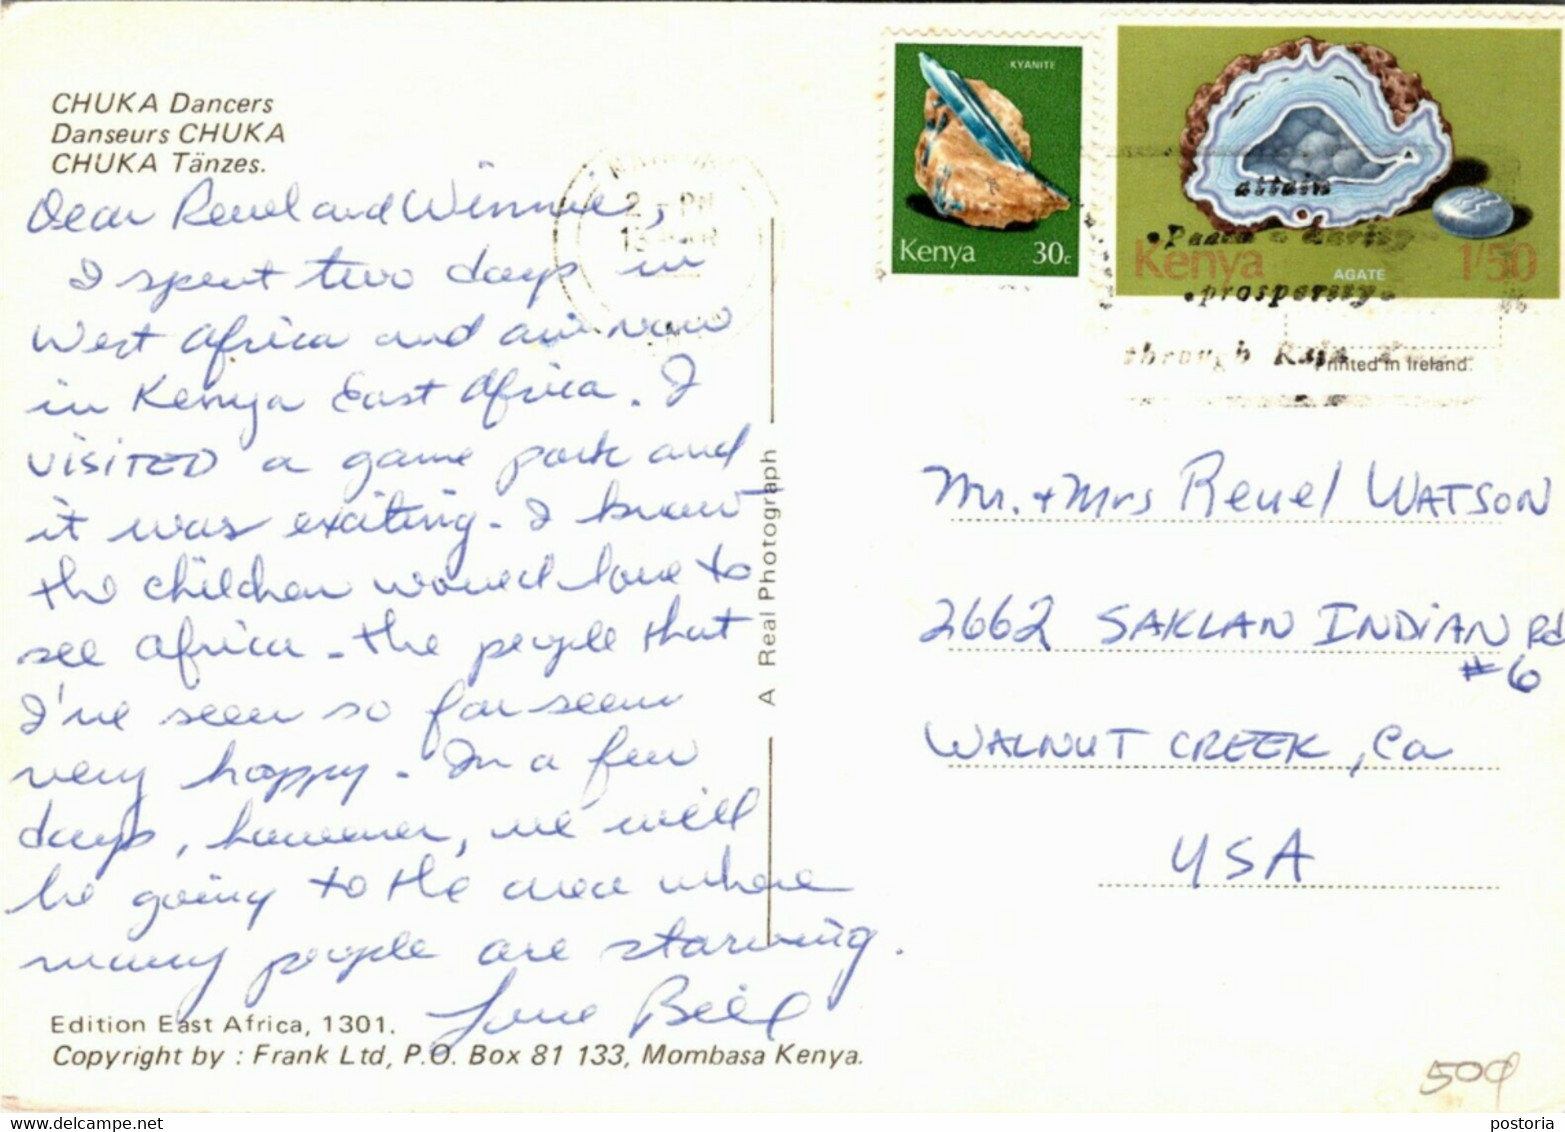 CHUKA Dancers
Danseurs CHUKA
CHUKA Tänzes.
Dear Reuel and Winnie,
I spent two days in
West Africa and am now
in Kenya East Africa. I
VISITED a game park and
it was exciting. I know
the children would love to
see Africa. The people that
I've seen so far seem
very happy. In a few
days, however, we will
be going to the area where
many people are starving.
Love Bill
Edition East Africa, 1301.
Copyright by : Frank Ltd, P.O. Box 81 133, Mombasa Kenya.
A Real Photograph
KYANITE
Kenya 30c
Kenya AGATE 1/50
2 - PM
attain
prosperity
through
Printed in Ireland.
Mr. + Mrs Reuel WATSON
2662 SAKLAN INDIAN Rd
#6
WALNUT CREEK, Ca
USA
postoria